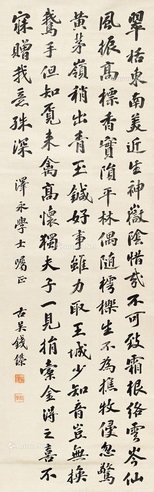 翠栝東南美近生神嶽陰惜哉不可致霜根絡雲岑仙
風振高標香實隕平林偶隨樗櫟生不為樵牧侵忽驚
黃茅嶺稍出青玉鍼好事雖力取王城少知音豈無換
鵝手但知覓來禽高懷獨夫子一見捐橐金得之喜不
寐贈我意殊深
澤永學士囑正
古吳錢傑